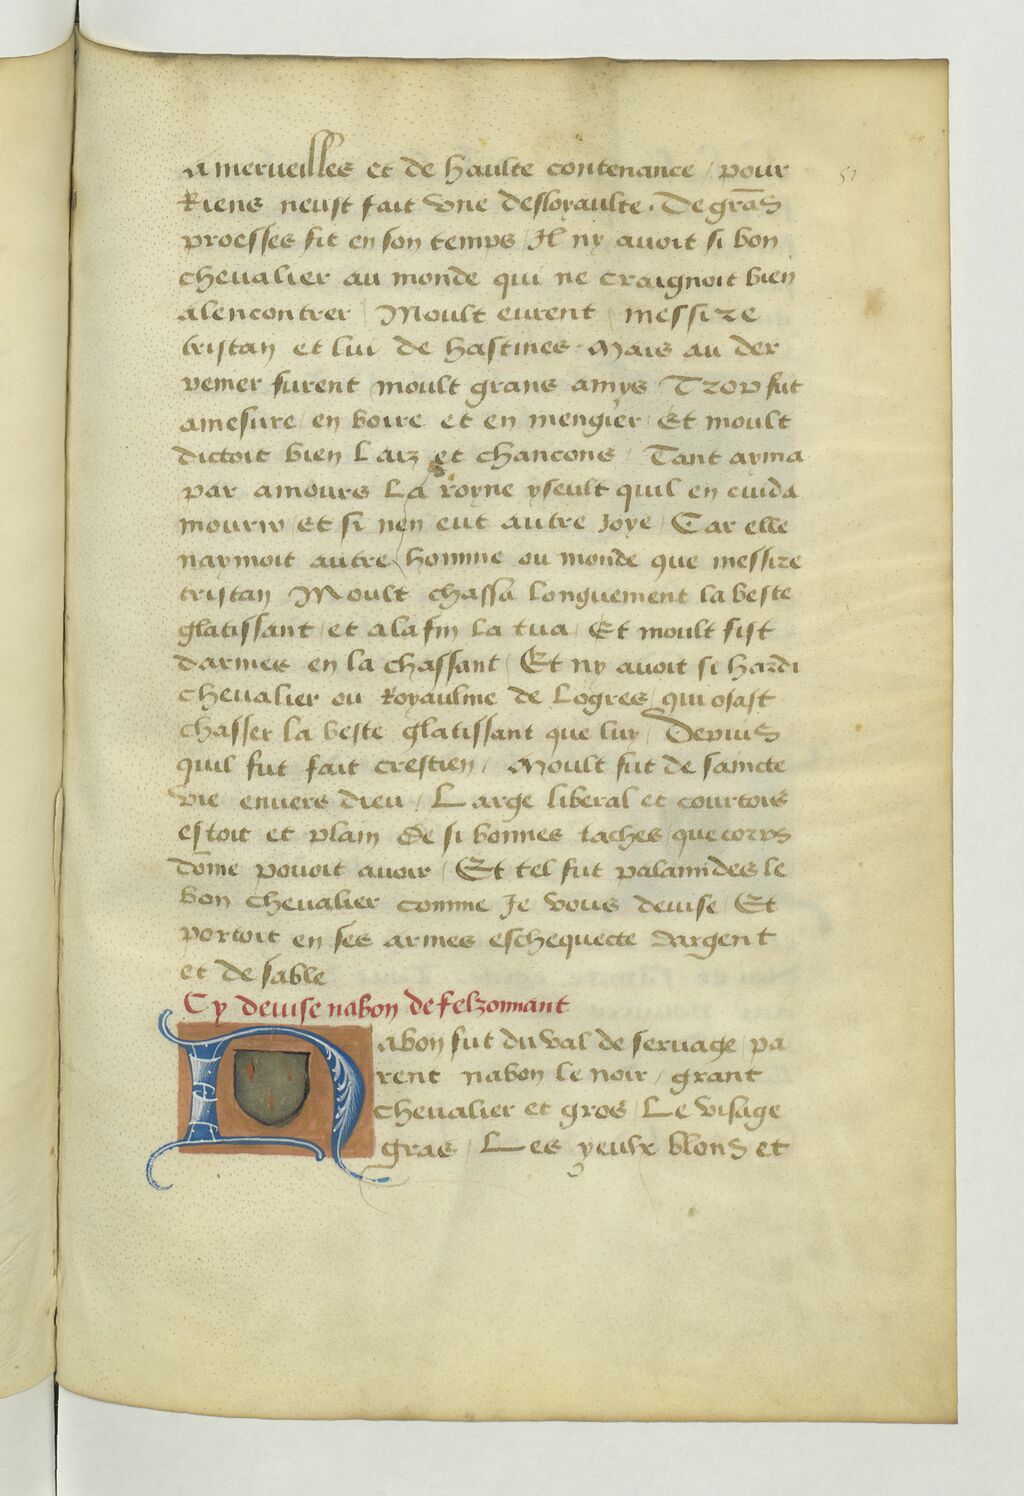 amerveilles et de haulte contenance / pour
Riens neust fait vne desloyaulte. De grãs
proesses fit en son temps / Il ny auoit si bon
cheualier au monde qui ne craignoit bien
alencontrer / Moult eurent / messire
tristan et lui de hastines. Mais au der
remer furent moult grans amys Trop fut
amesure / en boire et en mengier / Et moult
dictoit bien Laiz et chancons / Tant ayma
par amours La royne yseult quil en cuida
mourir / Et si nen eut autre Joye / Car elle
naymoit autre homme ou monde que messire
tristan Moult chassa longuement la beste
glatissant / et alafin la tua / Et moult fist
darmes en la chassant / Et ny auoit si hardi
cheualier ou Royaulme de Logres / qui osast
chasser la beste glatissant que luy / Depuis
quil fut fait crestien / Moult fut de saincte
vie enuers dieu / Large liberal et courtois
estoit et plain de si bonnes taches / que corps
dõme pouoit auoir / Et tel fut palamides le
bon cheualier comme Je vous deuise / Et
portoit en ses armes eschequecte dargent
et de sable
Cy deuise nabon de felzonnant
Nabon fut du val de seruage / pa
rent nabon le noir / grant
cheualier et gros / Le visage
gras / Les yeulx blons et
51